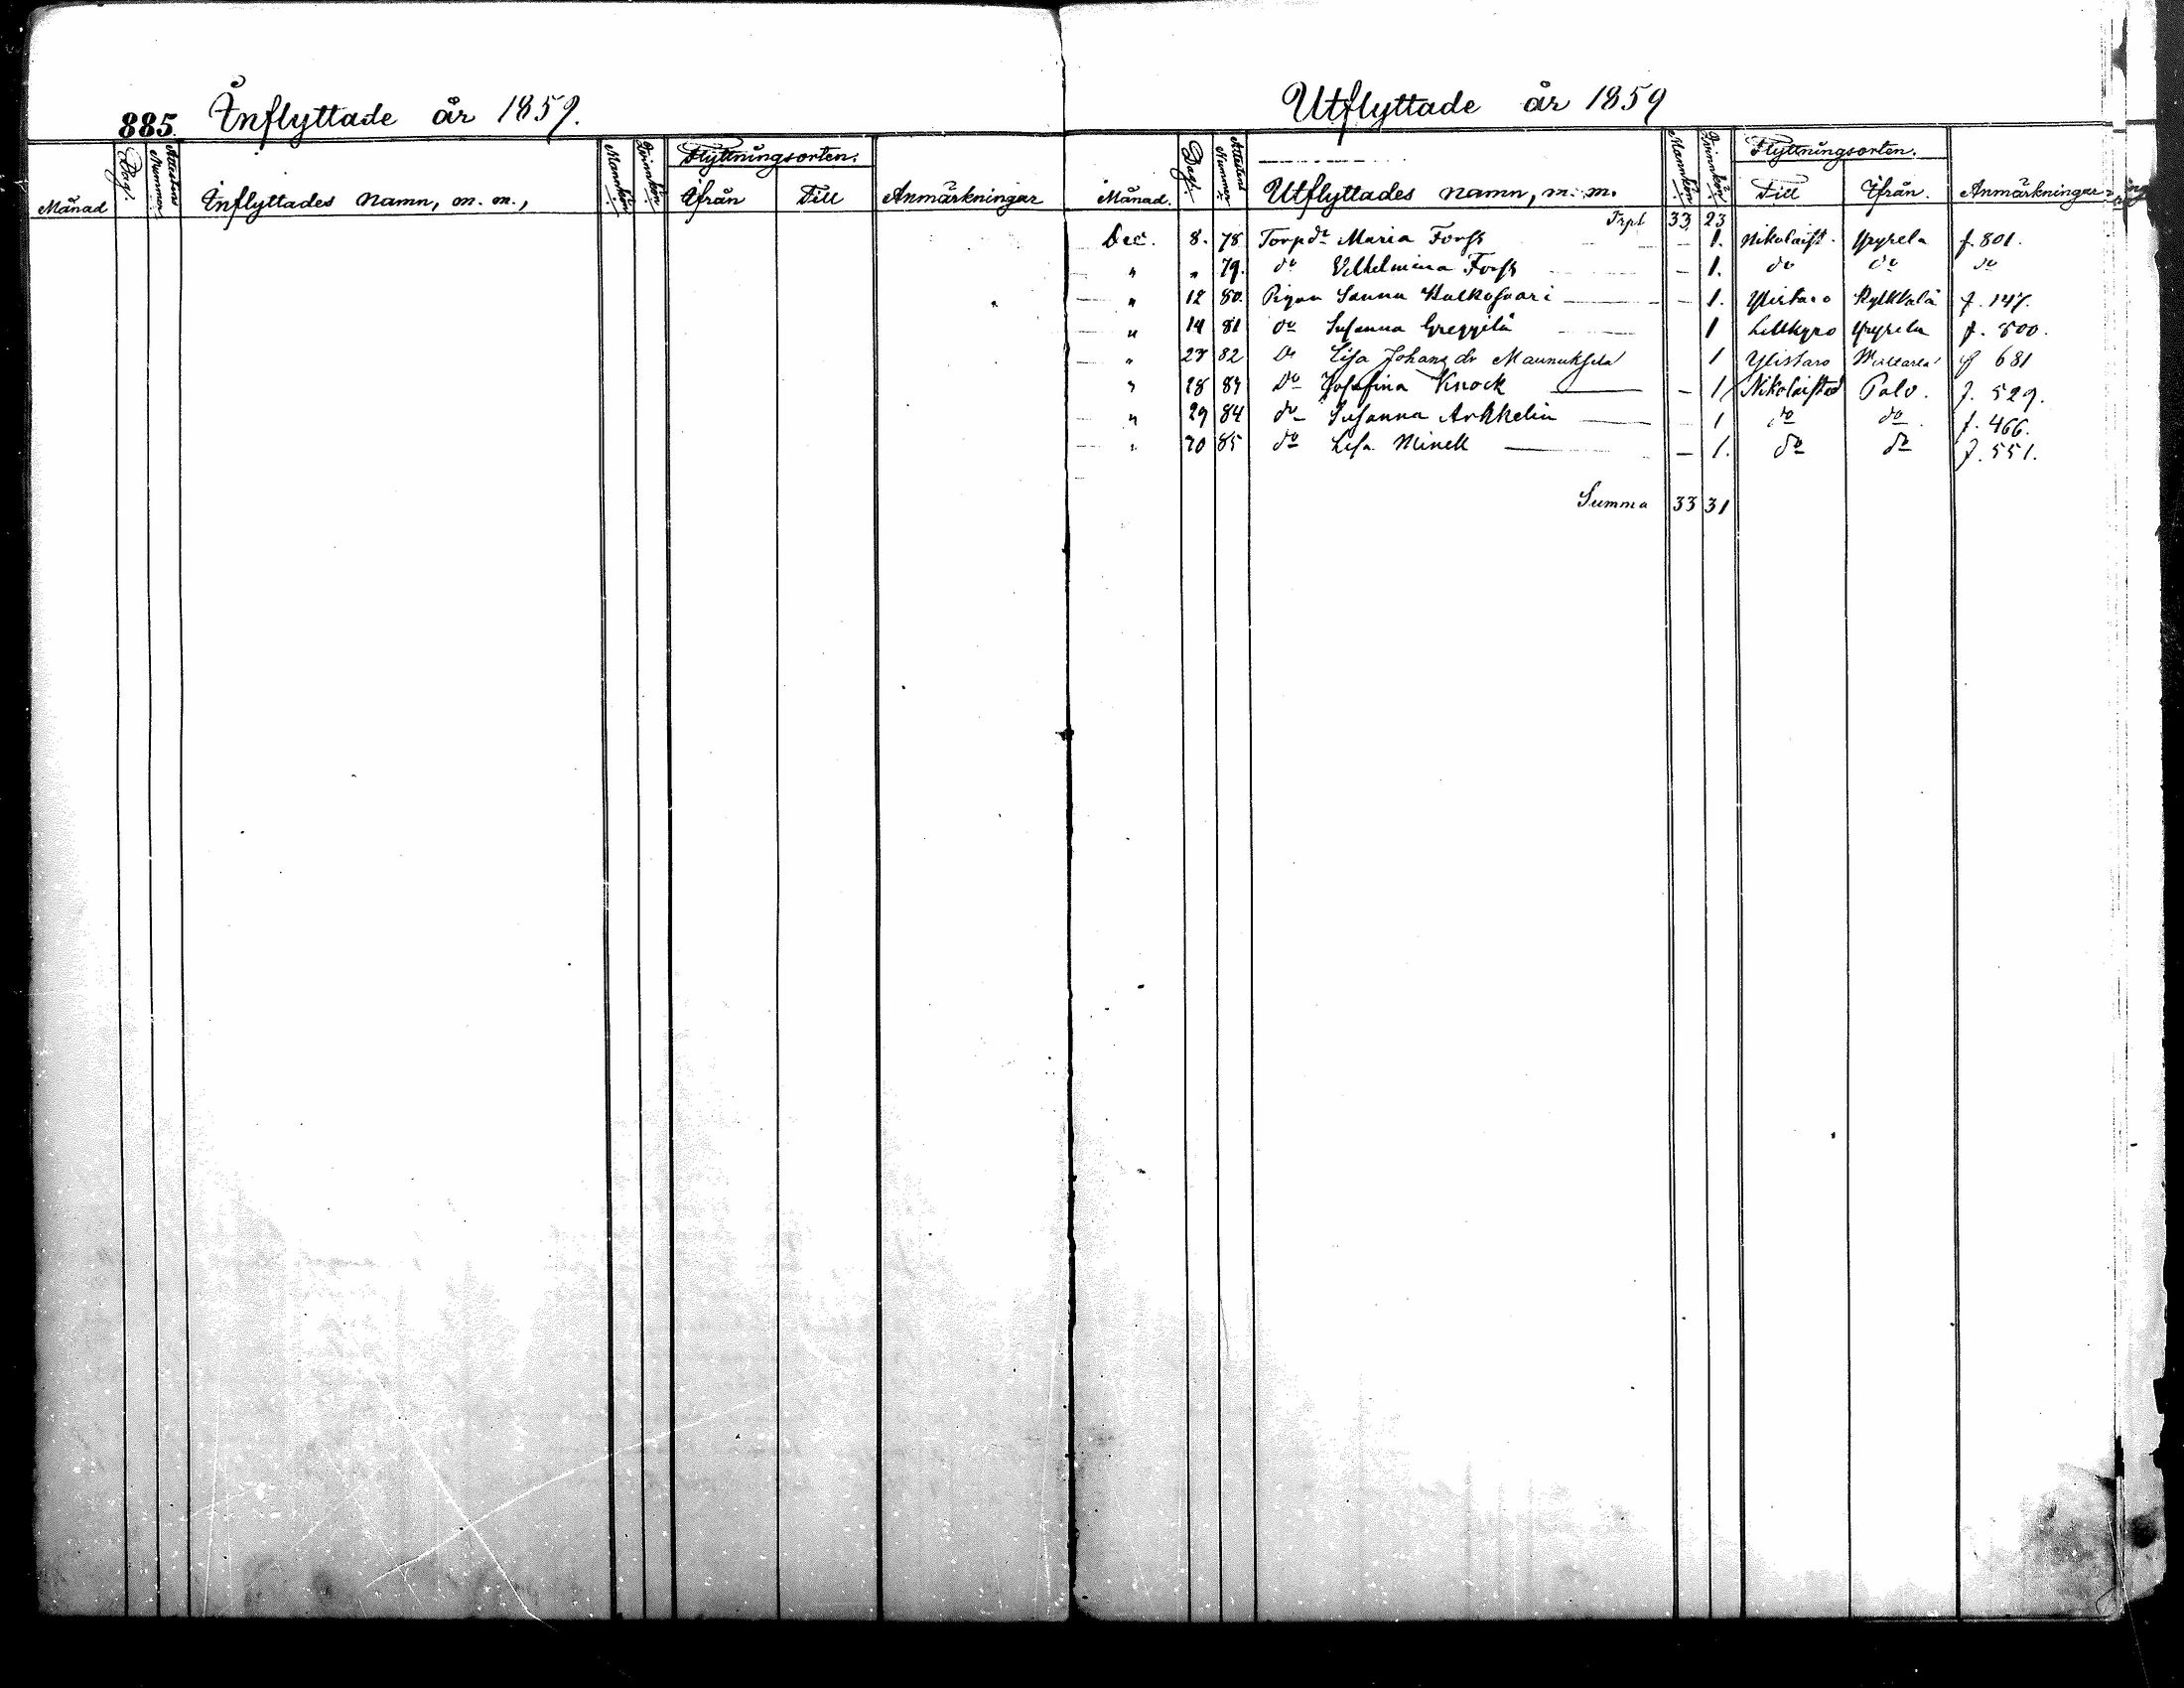 885. Inflyttade år 1859.
Månad Dag. Attestens Nummer Inflyttades Namn, m. m., Mankön. Qvinkön. Flyttningsorten. Ifrån Till Anmärkningar
Utflyttade år 1859
Månad. Dag. Attestens Nummer Utflyttades namn, m. m. Mankön. Qvinkön. Flyttningsorten. Till Ifrån. Anmärkningar
Trpt 33 23
Dec. 8. 78 Torpdr Maria Forss — 1. Nikolaist. Yryselä f. 801.
" " 79. do Vilhelmina Forss — 1. do do do
" 12 80. Pigan Sanna Kalkosaari — 1. Ylistaro Kylkkälä f. 147.
" 14 81 do Susanna Greggilä 1 Lillkyro Yryselä f. 800.
" 23 82 Do Lisa Johansdr Maunuksela 1 Ylistaro f 681
" 28 83 Do Josefina Knock — 1 Nikolaistad Palo. f. 529.
" 29 84 do Susanna Arkkelin 1 do do. f. 466.
" 30 85 do Lisa Minell — 1. do do f. 551.
Summa 33 31